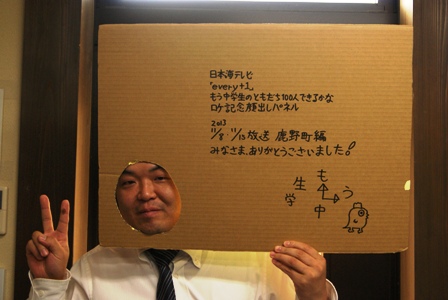 日本海テレビ
「every+1」
もう中学生のともだち100人できるかな
ロケ記念顔出しパネル
2013
11/8 11/15放送 鹿野町編
みなさま、ありがとうございました!
も
う
中
学
生